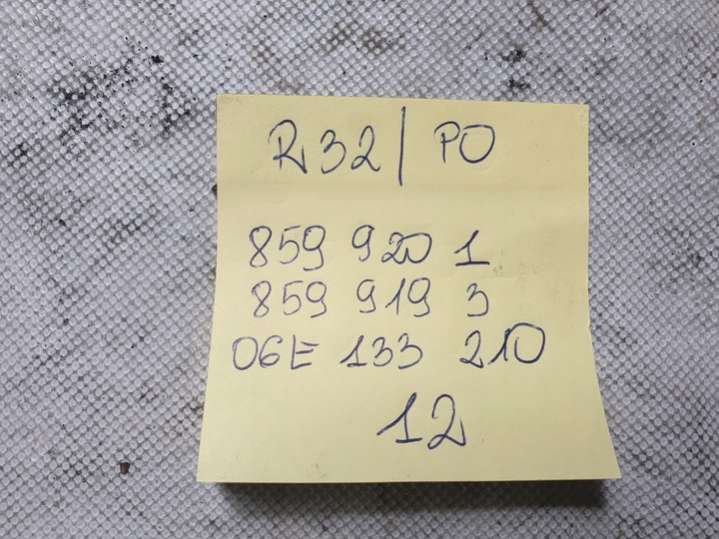 R32 | PO
859 920 1
859 919 3
06E 133 210
12